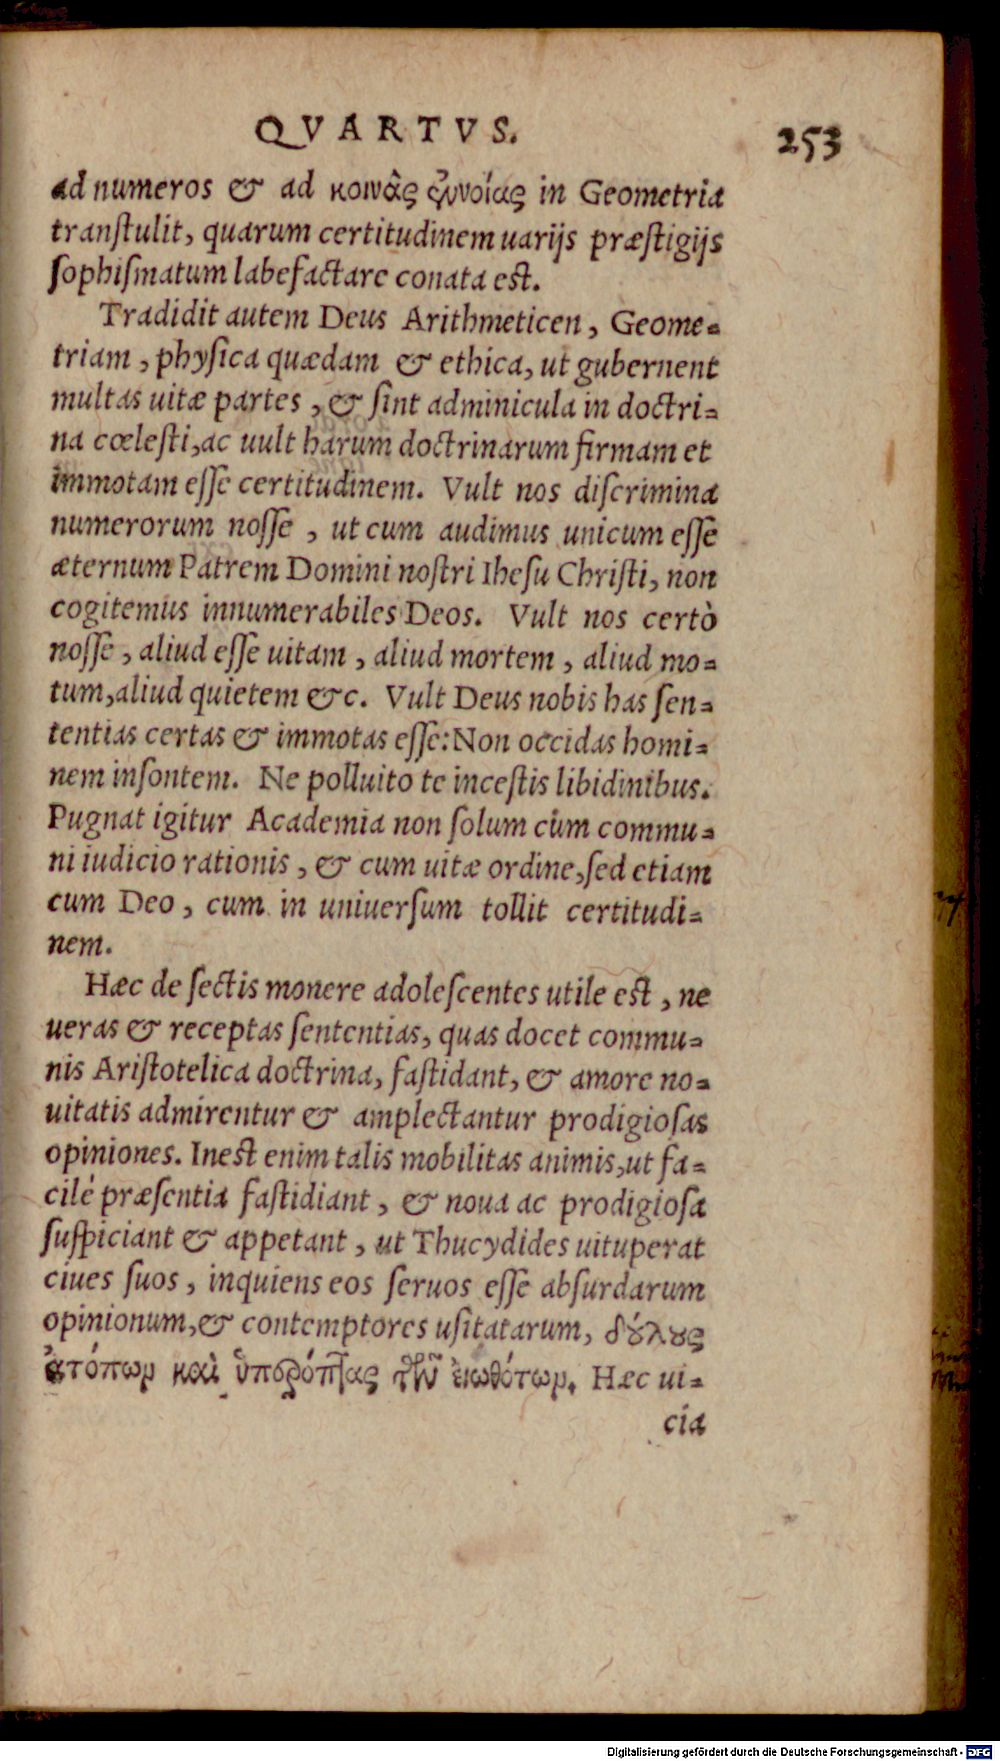 QVARTVS.
253
ad numeros & ad κοινὰς ἐννοίας in Geometria
tranſtulit, quarum certitudinem uarijs præſtigijs
ſophiſmatum labefactare conata eſt.
Tradidit autem Deus Arithmeticen, Geome-
triam, phyſica quædam & ethica, ut gubernent
multas uitæ partes, & ſint adminicula in doctri-
na cœleſti, ac uult harum doctrinarum firmam et
immotam eſſe certitudinem. Vult nos diſcrimina
numerorum noſſe, ut cum audimus unicum eſſe
æternum Patrem Domini noſtri Iheſu Chriſti, non
cogitemus innumerabiles Deos. Vult nos certò
noſſe, aliud eſſe uitam, aliud mortem, aliud mo-
tum, aliud quietem &c. Vult Deus nobis has ſen-
tentias certas & immotas eſſe: Non occidas homi-
nem inſontem. Ne polluito te inceſtis libidinibus.
Pugnat igitur Academia non ſolum cùm commu-
ni iudicio rationis, & cum uitæ ordine, ſed etiam
cum Deo, cum in uniuerſum tollit certitudi-
nem.
Hæc de ſectis monere adoleſcentes utile eſt, ne
ueras & receptas ſententias, quas docet commu-
nis Ariſtotelica doctrina, faſtidant, & amore no-
uitatis admirentur & amplectantur prodigioſas
opiniones. Ineſt enim talis mobilitas animis, ut fa-
cilè præſentia faſtidiant, & noua ac prodigioſa
ſuſpiciant & appetant, ut Thucydides uituperat
ciues ſuos, inquiens eos ſeruos eſſe abſurdarum
opinionum, & contemptores uſitatarum, δούλους
ἀτόπων καὶ ὑπερόπτας τῶν ἐιωθότων. Hæc ui-
cia
Digitalisierung gefördert durch die Deutsche Forschungsgemeinschaft - DFG